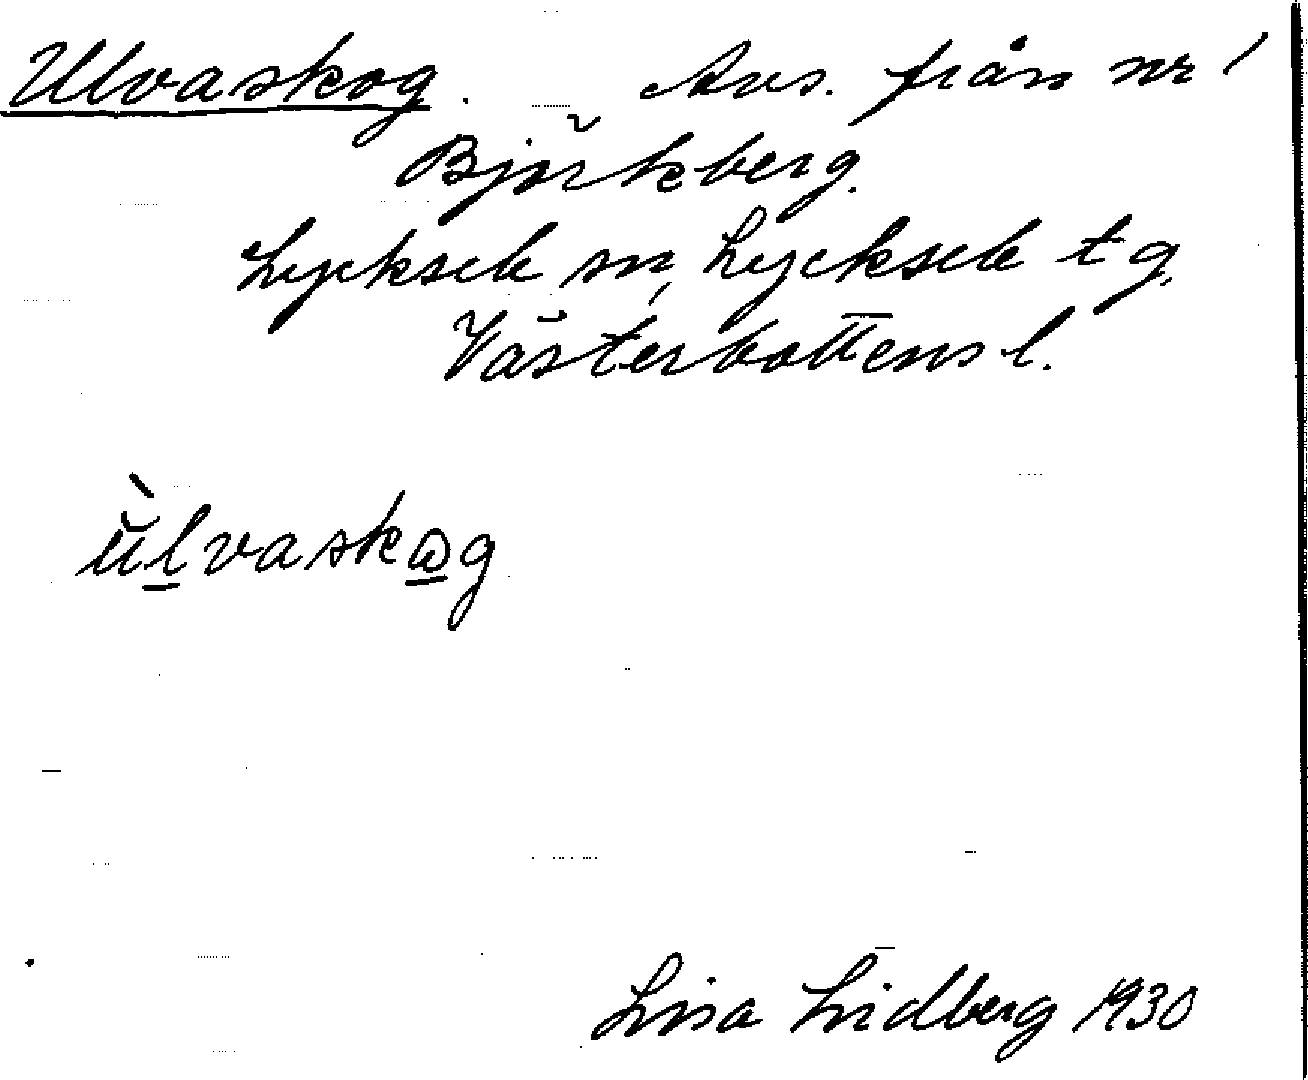 Ulvaskog. Avs. från nr 1
Björkberg.
Lycksele sn, Lycksele tg,
Västerbottens l.
ùlvaskωg
Lisa Lidberg 1930